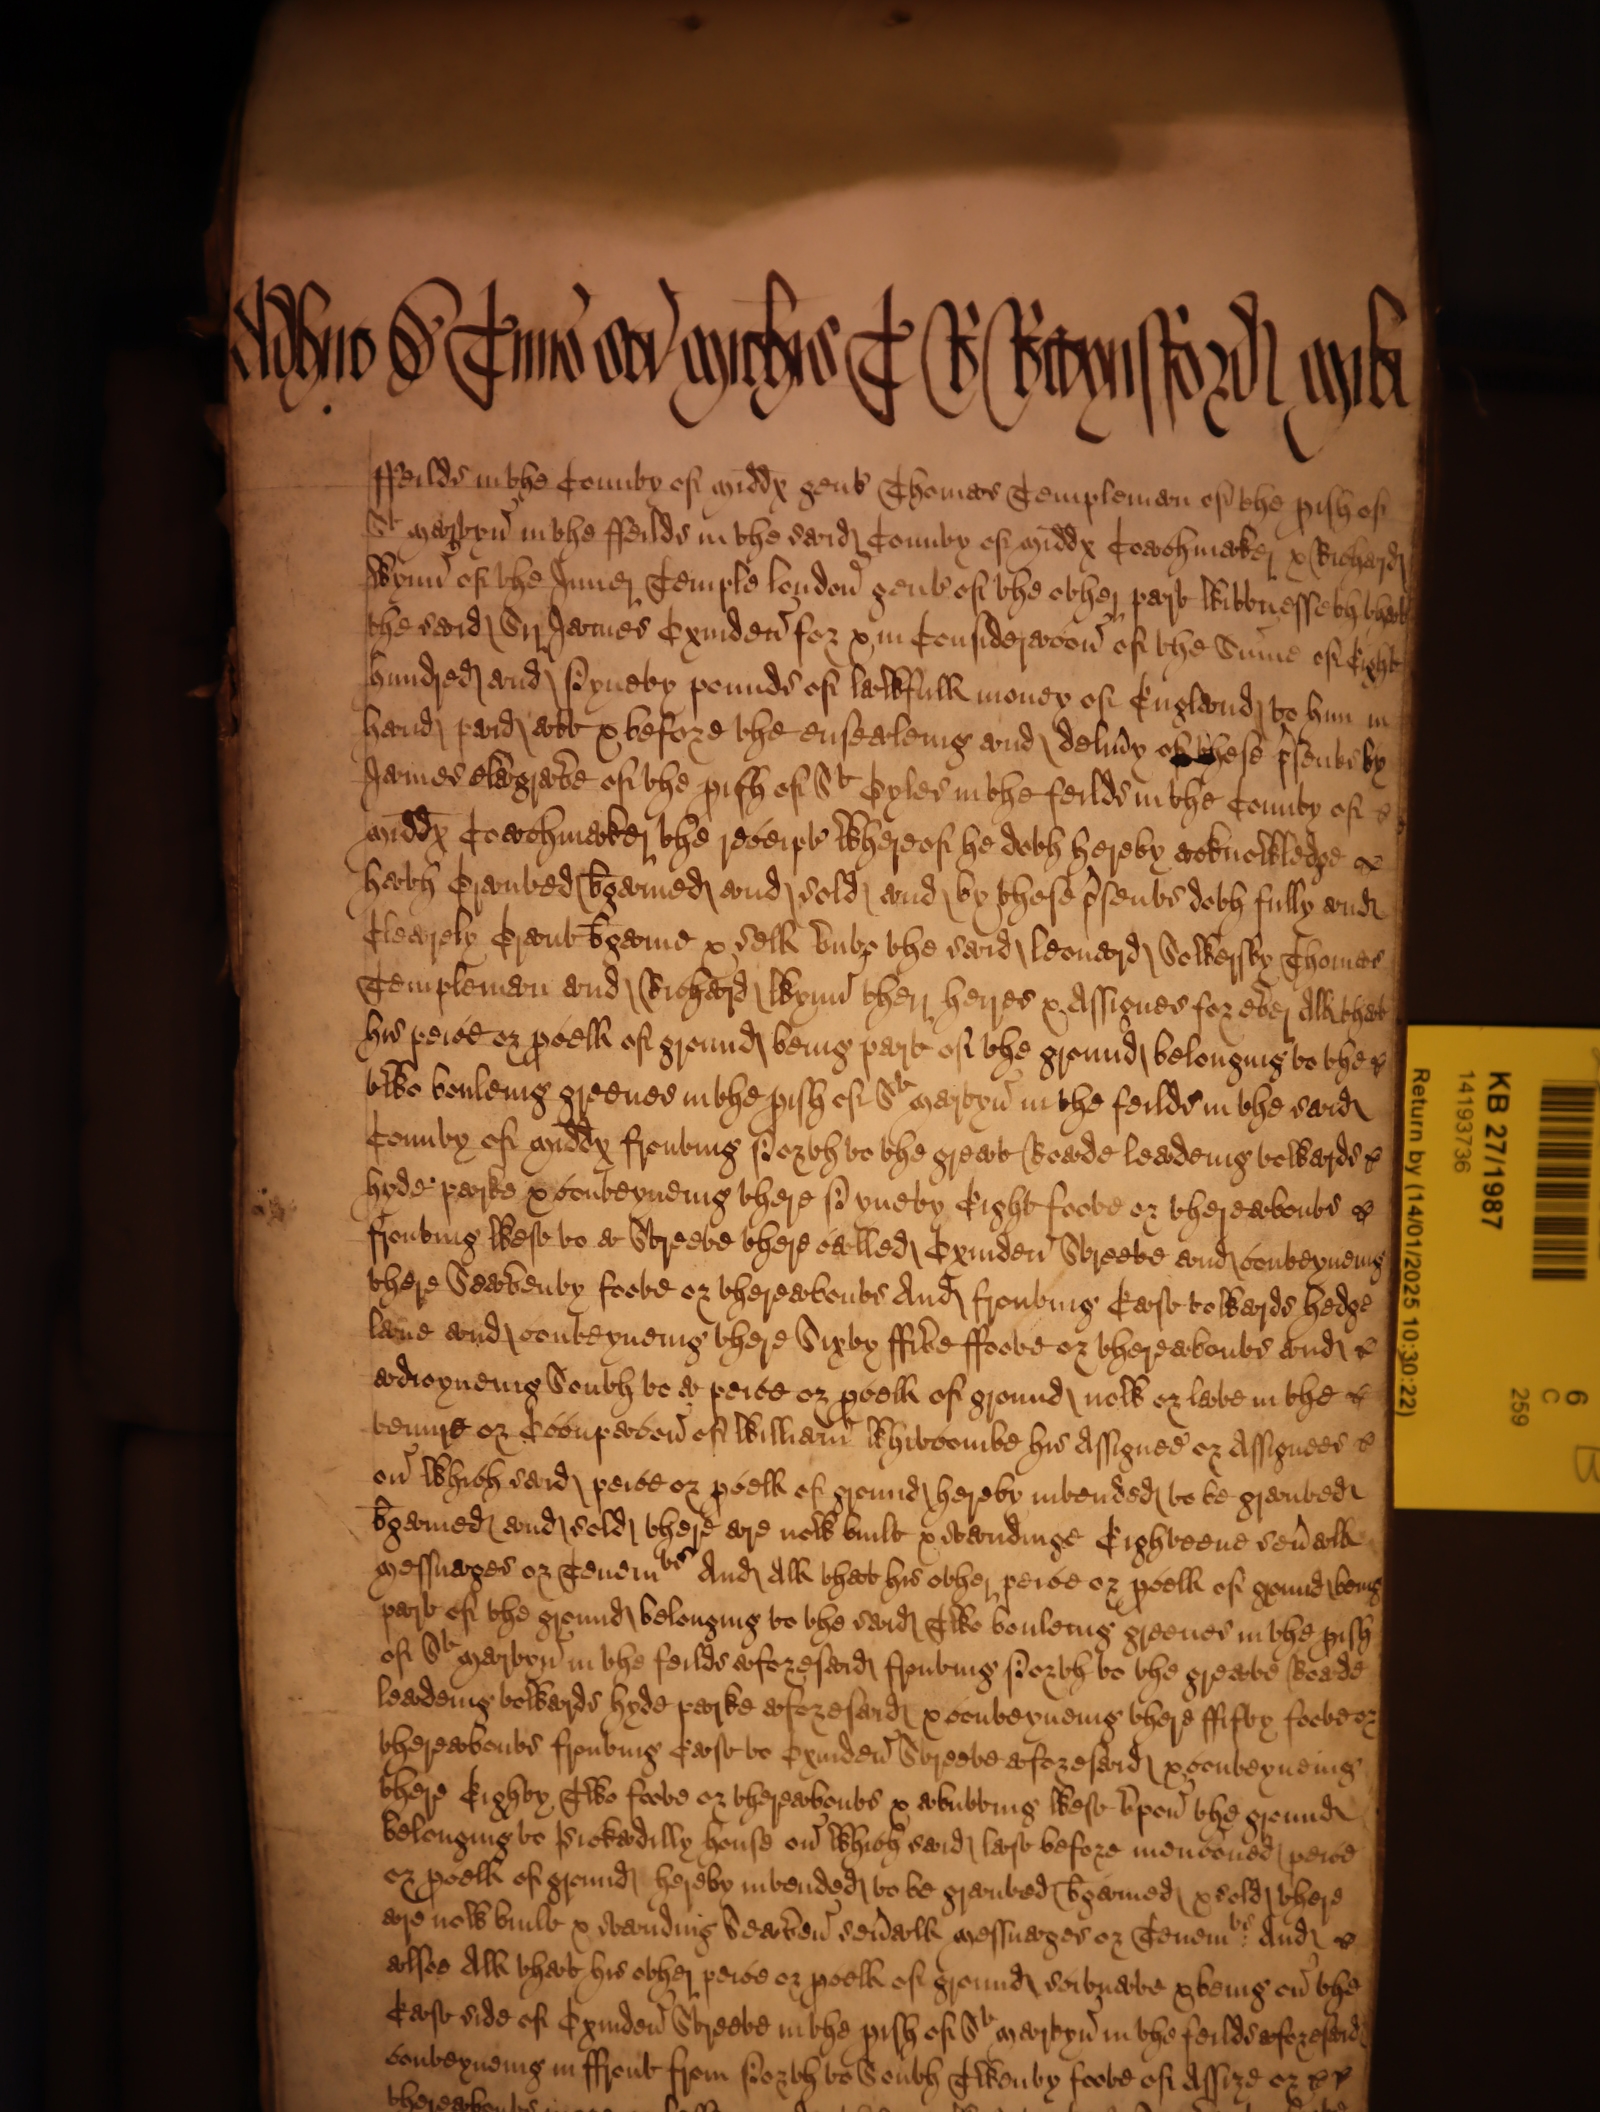 Adhuc De Termio sci Michis T R Raynsford Mil
ffeilds in the County of Middx gent Thomas Templeman of the pish of
St Martyn in the ffeilds in the said County of Middx Coachmaker & Richard
Wynn of the Inner Temple london gent of the other part Wittnesseth that
the said Sir James Oxinden for & in Consideracon of the Sume of Eight
hundred and Nynety pounds of lawfull money of England to him in
hand paid att & before the ensealeing and delivy of these psents by
James of the pish of St Gyles in the feilds in the County of
Middx Coachmaker the receipt whereof he doth hereby acknowledge
hath Granted bgained and sold and by these psents doth fully and
Clearely Grant bgaine & sell unto the said leonard Sowersby Thomas
Templeman and Richard Wynn their heires & Assignes for ever All that
his peice or pcell of ground being part of the ground belonging to the
two bouleing greenes in the pish of St Martyn in the feilds in the said
County of Middx fronting North to the great Roade leadeing towards
hyde parke & conteyneing there Nynety Eight foote or thereabouts
fronting West to a Streete there called Oxinden Streete and conteyneing
there Seaventy foote or thereabouts And fronting East towards hedge
lane and conteyneing there Sixty ffive ffoote or thereabouts and
adioyneing South to a peice or pcell of ground now or late in the
tenure or Occupacon of William Whitcombe his Assignee or Assignees
on which said peice or pcell of ground hereby intended to be granted
bgained and sold there are now built & standinge Eighteene sevall
Messuages or Tenemts And All that his other peice or pcell of ground being
part of the ground belonging to the said Two bouleing greenes in the pish
of St Martyn in the feilds aforesaid fronting North to the greate Roade
leadeing towards hyde parke aforesaid & conteyneing there ffifty foote or
thereabouts fronting East to Oxinden Streete aforesaid & conteyneing
there Eighty Two foote or thereabouts & abutting West upon the ground
belonging to Pickadilly house on which said last before menconed peice
or pcell of ground hereby intended to be granted bgained & sold there
are now built & standing Seaven sevall Messuages or Tenemts: And
alsoe All that his other peice or pcell of ground scituate & being on the
East side of Oxinden Streete in the pish of St Martyn in the feilds aforesaid
conteyneing in ffront from North to South Twenty foote of Assize or
thereabouts
KB 27/1987
14193736
Return by (14/01/2025 10:30:22)
6
C
259